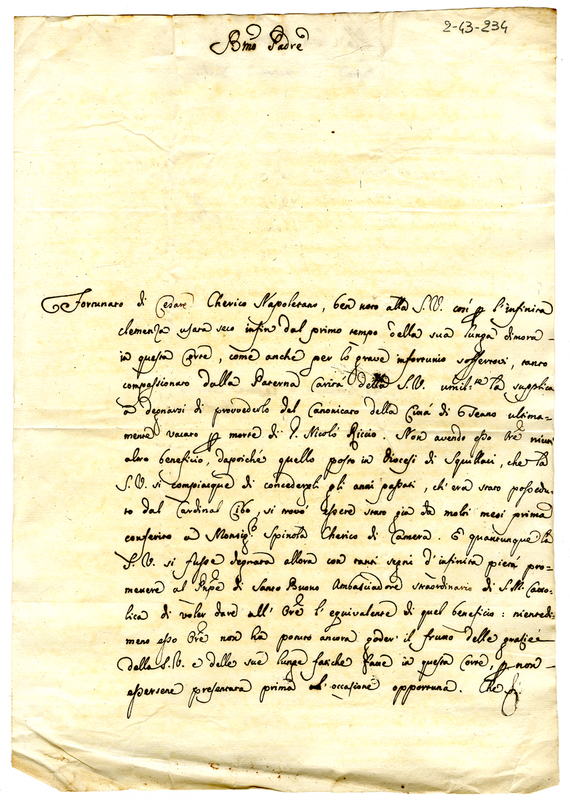 2-43-234
B.mo Padre
Fortunato di Cesare Cherico Napoletano, ben noto alla S.V. così p l'infinita
clemenza usata seco infin dal primo tempo della sua lunga dimora
in questa Corte, come anche per lo grave infortunio soffertovi, tanto
compassionato dalla Paterna carità della S.V. umil.te la supplica
a degnarsi di provederlo del Canonicato della Città di Teano ultima-
mente vacato p morte di D. Nicolò Riccio. Non avendo esso Ore niun
altro beneficio, dapoiché quello posto in Diocesi di Squillaci, che la
S.V. si compiacque di concedergli gli anni passati, ch'era stato possedu-
to dal Cardinal Cibo, si trovò essere stato già da molti mesi prima
conferito a Monsig.r Spinola Cherico di Camera. E quantunque la
S.V. si fusse degnata allora con tanti segni d'infinita pietà pro-
mettere al Pnpe di Santo Buono Ambasciadore straordinario di S.M. Catto-
lica di voler dare all' Ore l'equivalente di quel beneficio: nientedi-
meno esso Ore non ha potuto ancora goder' il frutto delle grazie
della S.V. e delle sue lunghe fatiche fatte in questa Corte, p non
essersene presentata prima l'occasione opportuna. Che